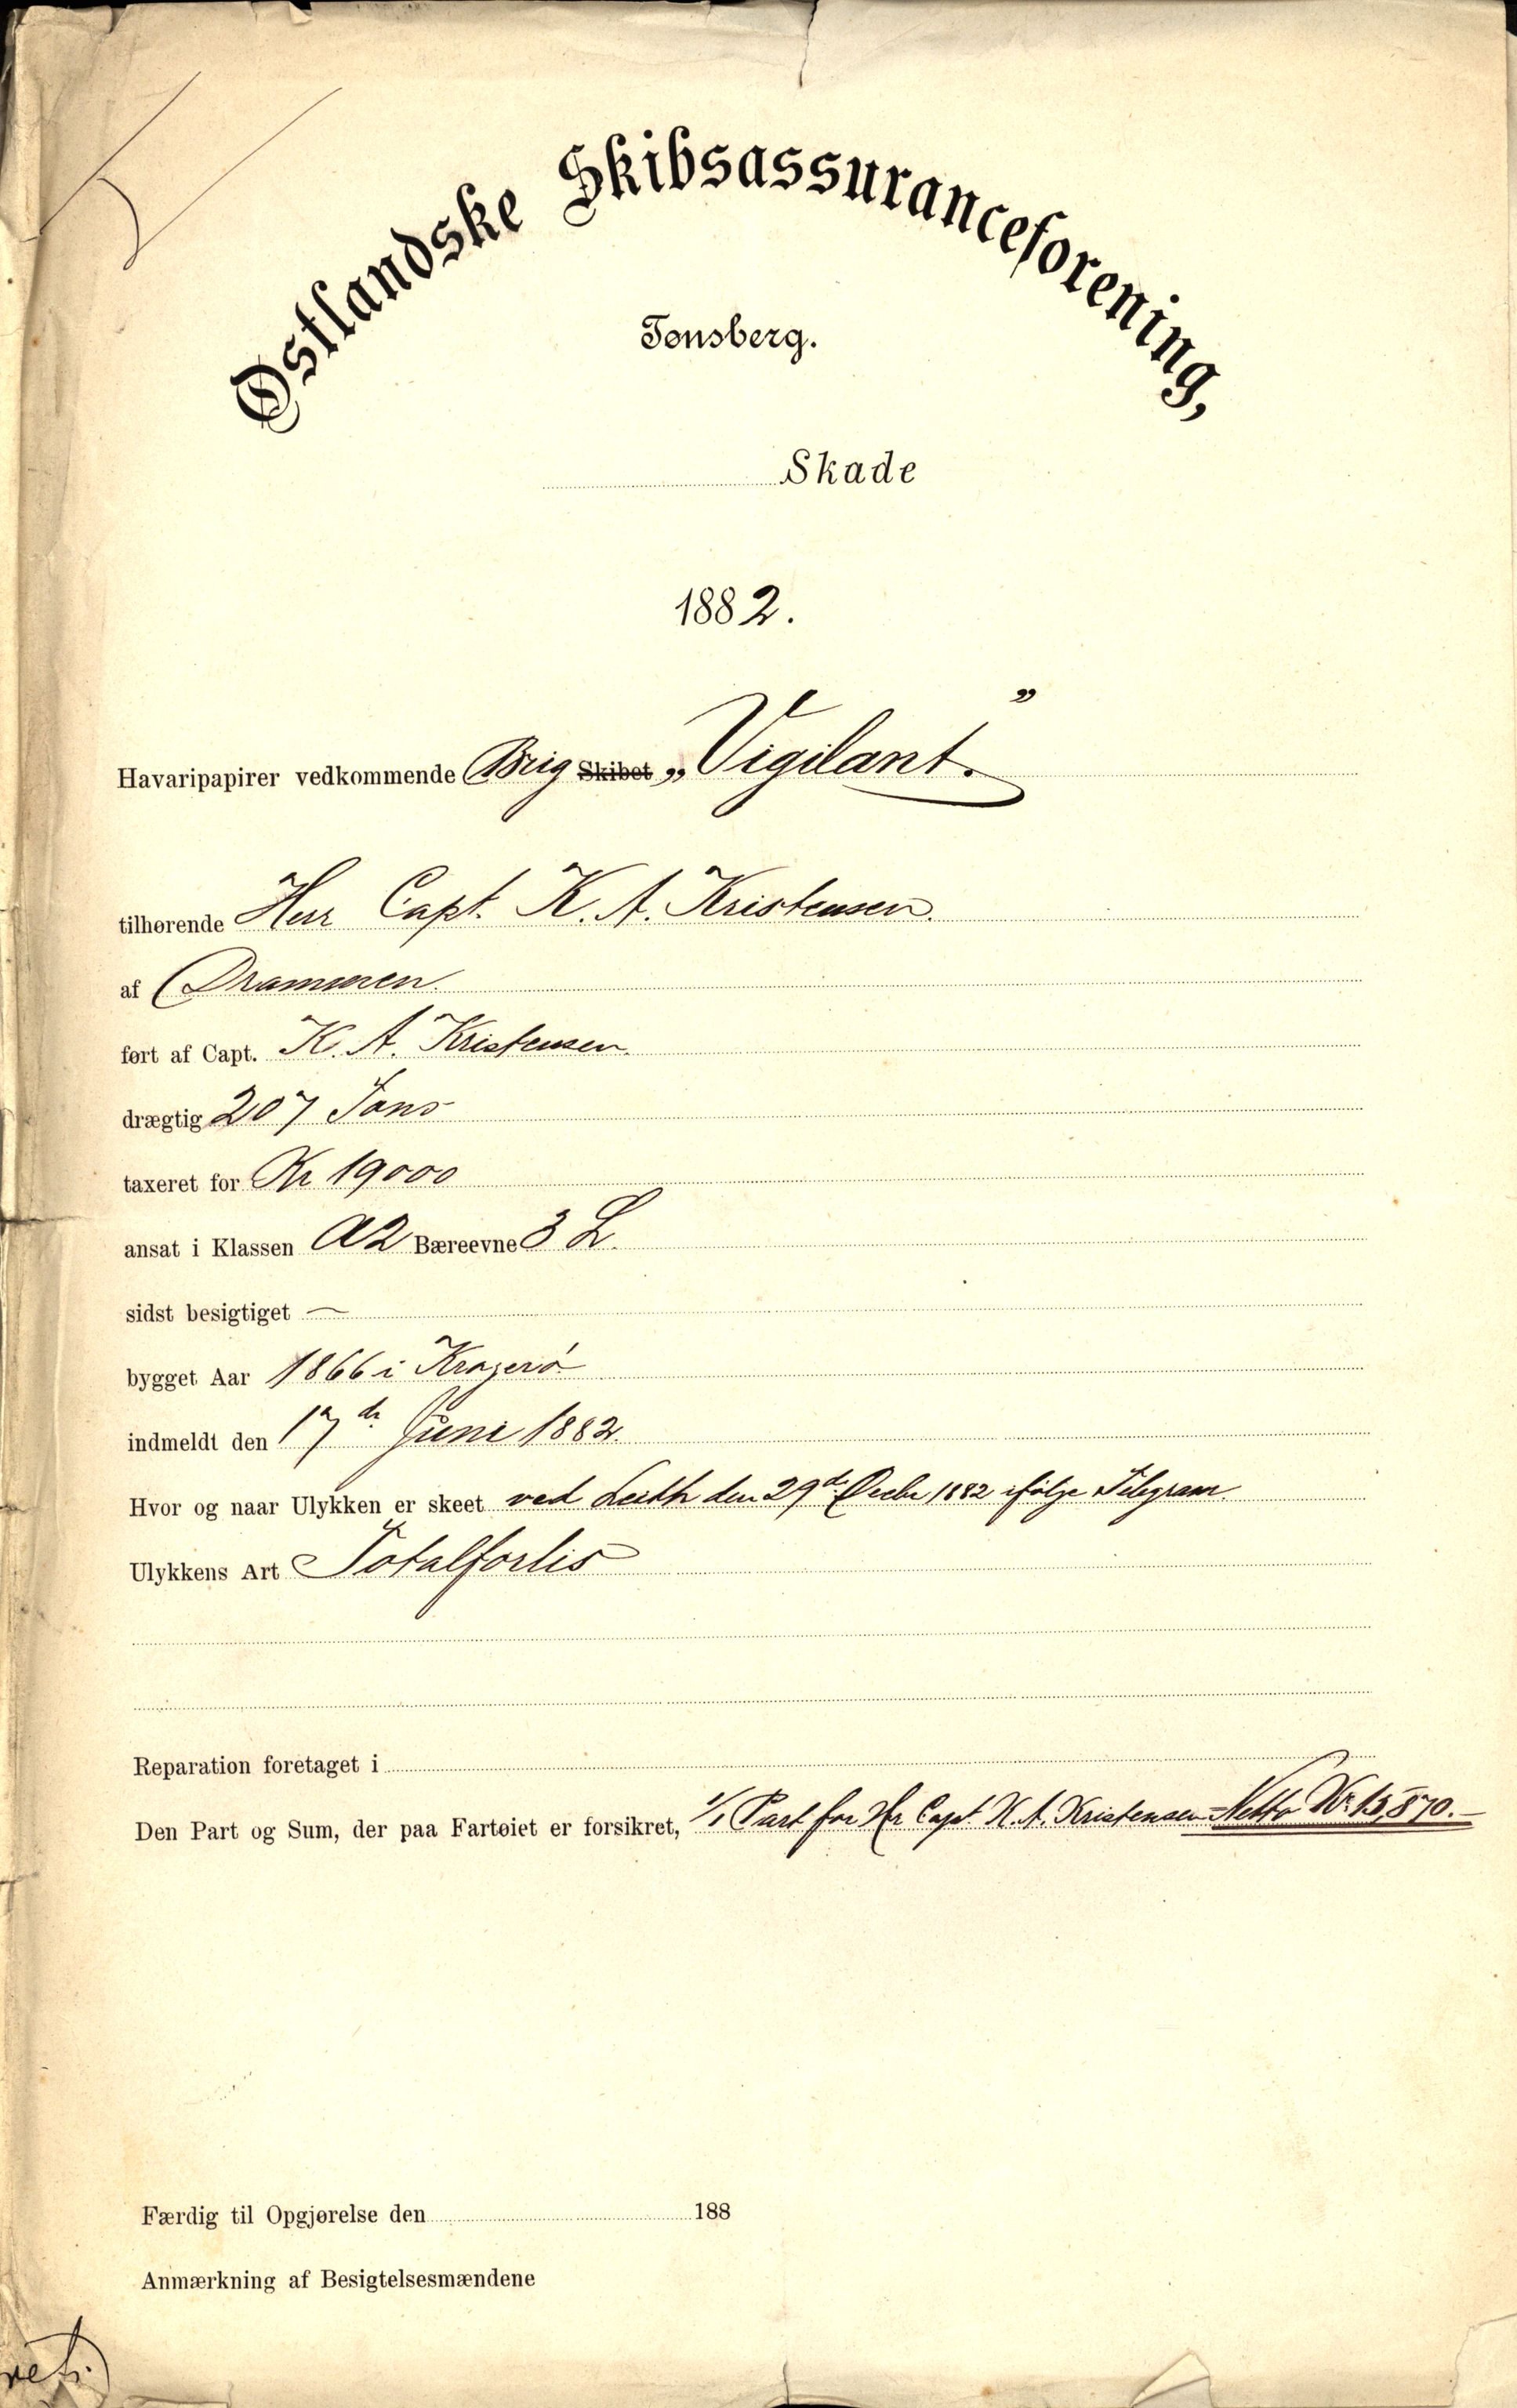 Østlandske Skibsassuranceforening,
Tønsberg.
Skade
1882.
Havaripapirer vedkommende Brig Skibet „Vigilant.”
tilhørende Herr Capt. K. A. Kristensen.
af Drammen.
ført af Capt. K. A. Kristensen.
drægtig 207 Tons
taxeret for Kr 19000
ansat i Klassen A2 Bæreevne 3 L.
sidst besigtiget —
bygget Aar 1866 i Kragerø
indmeldt den 17de Juni 1882.
Hvor og naar Ulykken er skeet ved Leith den 29de Decbr 1882 ifølge Telegram.
Ulykkens Art Totalforlis
Reparation foretaget i
Den Part og Sum, der paa Fartøiet er forsikret, 1/1 Part for Hr Capt. K. A. Kristensen = Netto Kr. 15,870.—
Færdig til Opgjørelse den 188
Anmærkning af Besigtelsesmændene